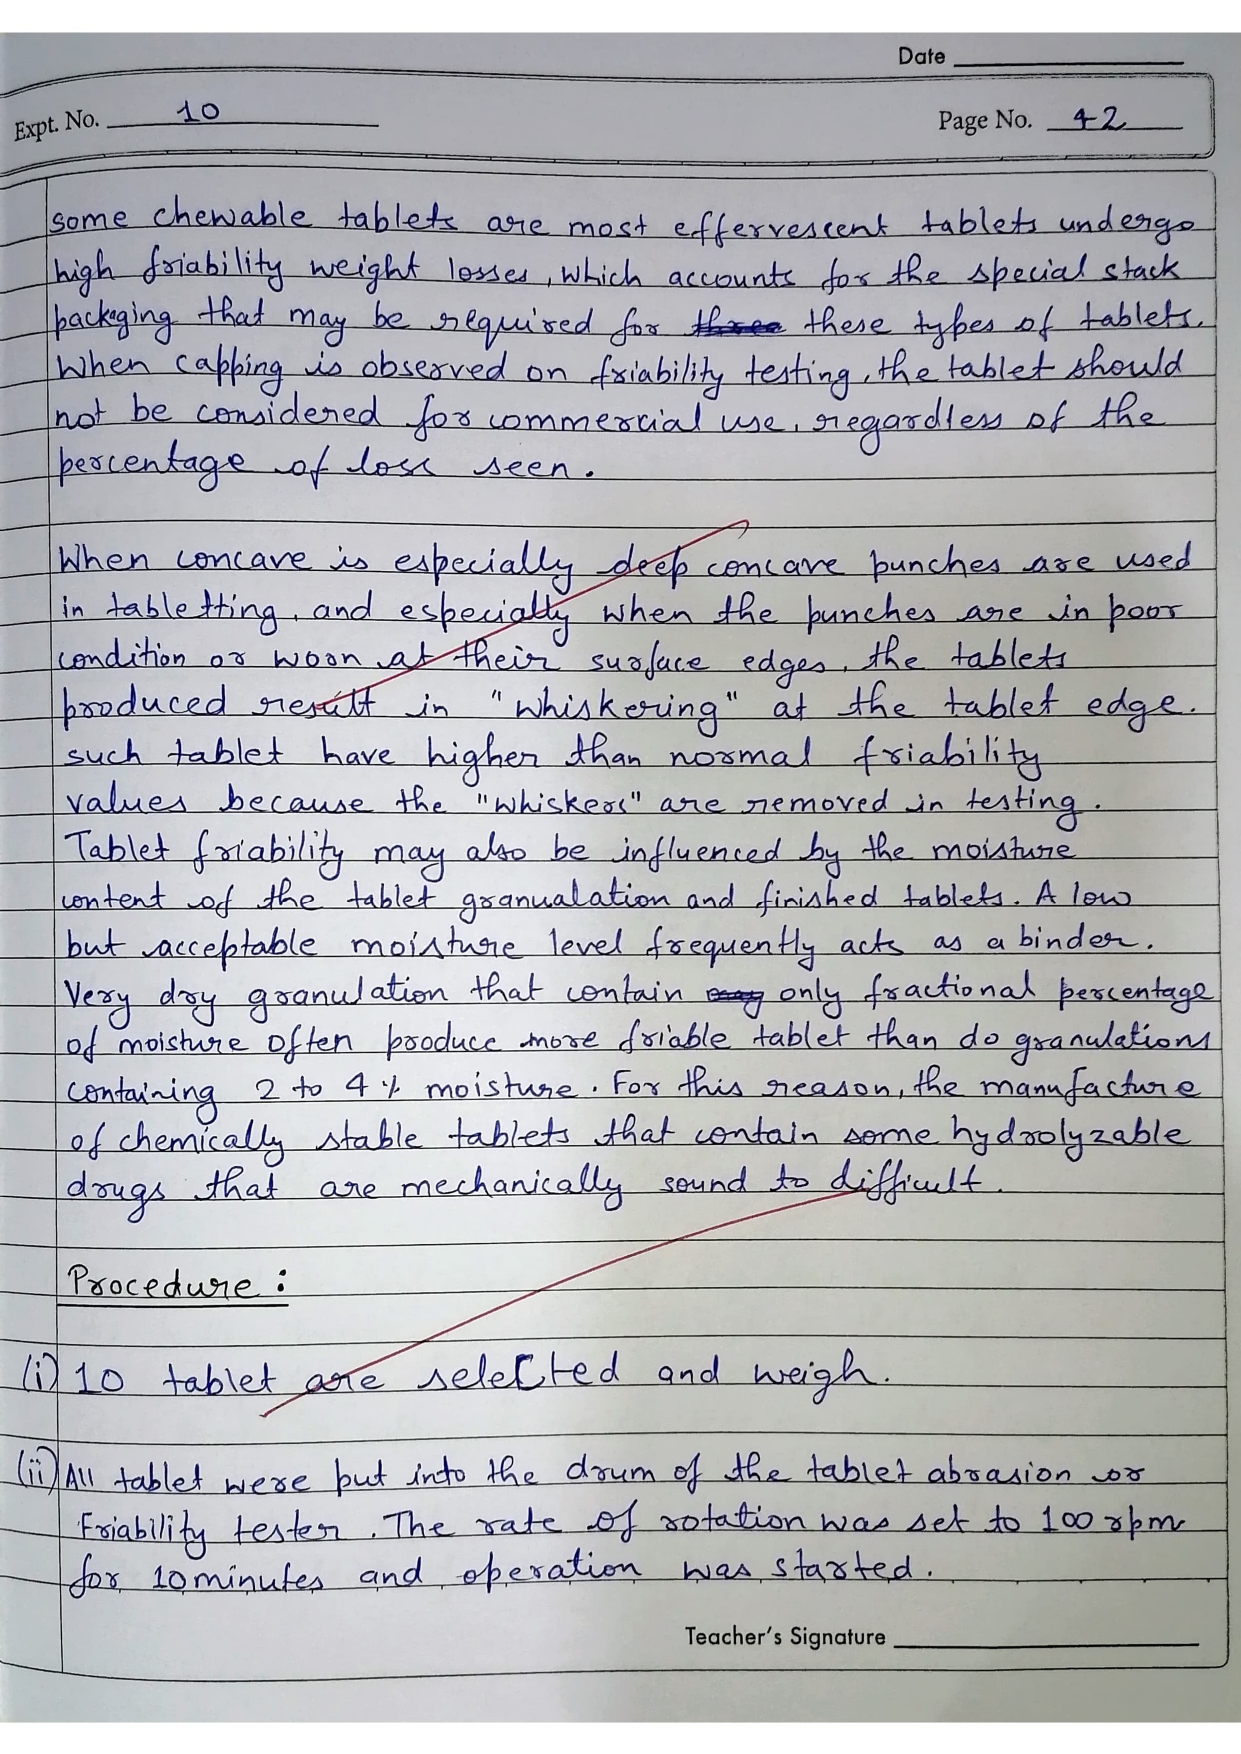 Date
Expt. No. 10
Page No. 42
some chewable tablets are most effervescent tablets undergo
high friability weight losses, which accounts for the special stack
packaging that may be required for these types of tablets.
When capping is observed on friability testing, the tablet should
not be considered for commercial use, regardless of the
percentage of loss seen.
When concave is especially deep concave punches are used
in tabletting, and especially when the punches are in poor
condition or woon at their surface edges, the tablets
produced result in "whiskering" at the tablet edge.
such tablet have higher than normal friability
values because the "whiskers" are removed in testing.
Tablet friability may also be influenced by the moisture
content of the tablet granualation and finished tablets. A low
but acceptable moisture level frequently acts as a binder.
Very dry granulation that contain only fractional percentage
of moisture often produce more friable tablet than do granulations
containing 2 to 4 % moisture. For this reason, the manufacture
of chemically stable tablets that contain some hydrolyzable
drugs that are mechanically sound to difficult.
Procedure :
(i) 10 tablet are selected and weigh.
(ii) All tablet were put into the drum of the tablet abrasion or
Friability tester. The rate of rotation was set to 100 rpm
for 10 minutes and operation was started.
Teacher's Signature